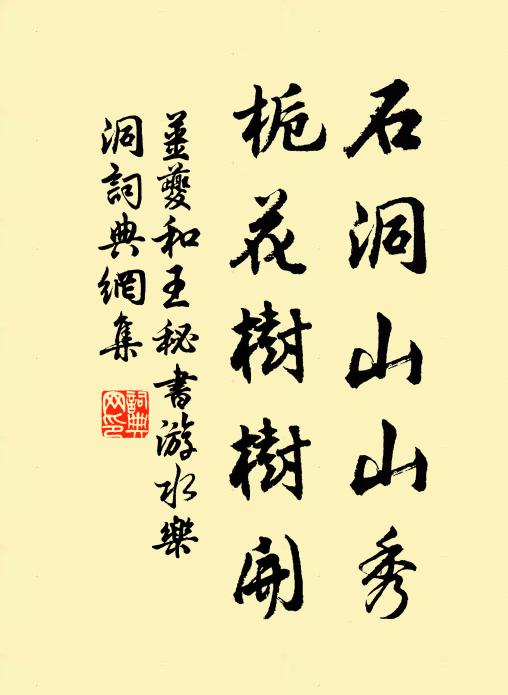 石洞山山秀
栀花樹樹開
姜夔和王秘書游水樂
洞詞典網集
詞典網印